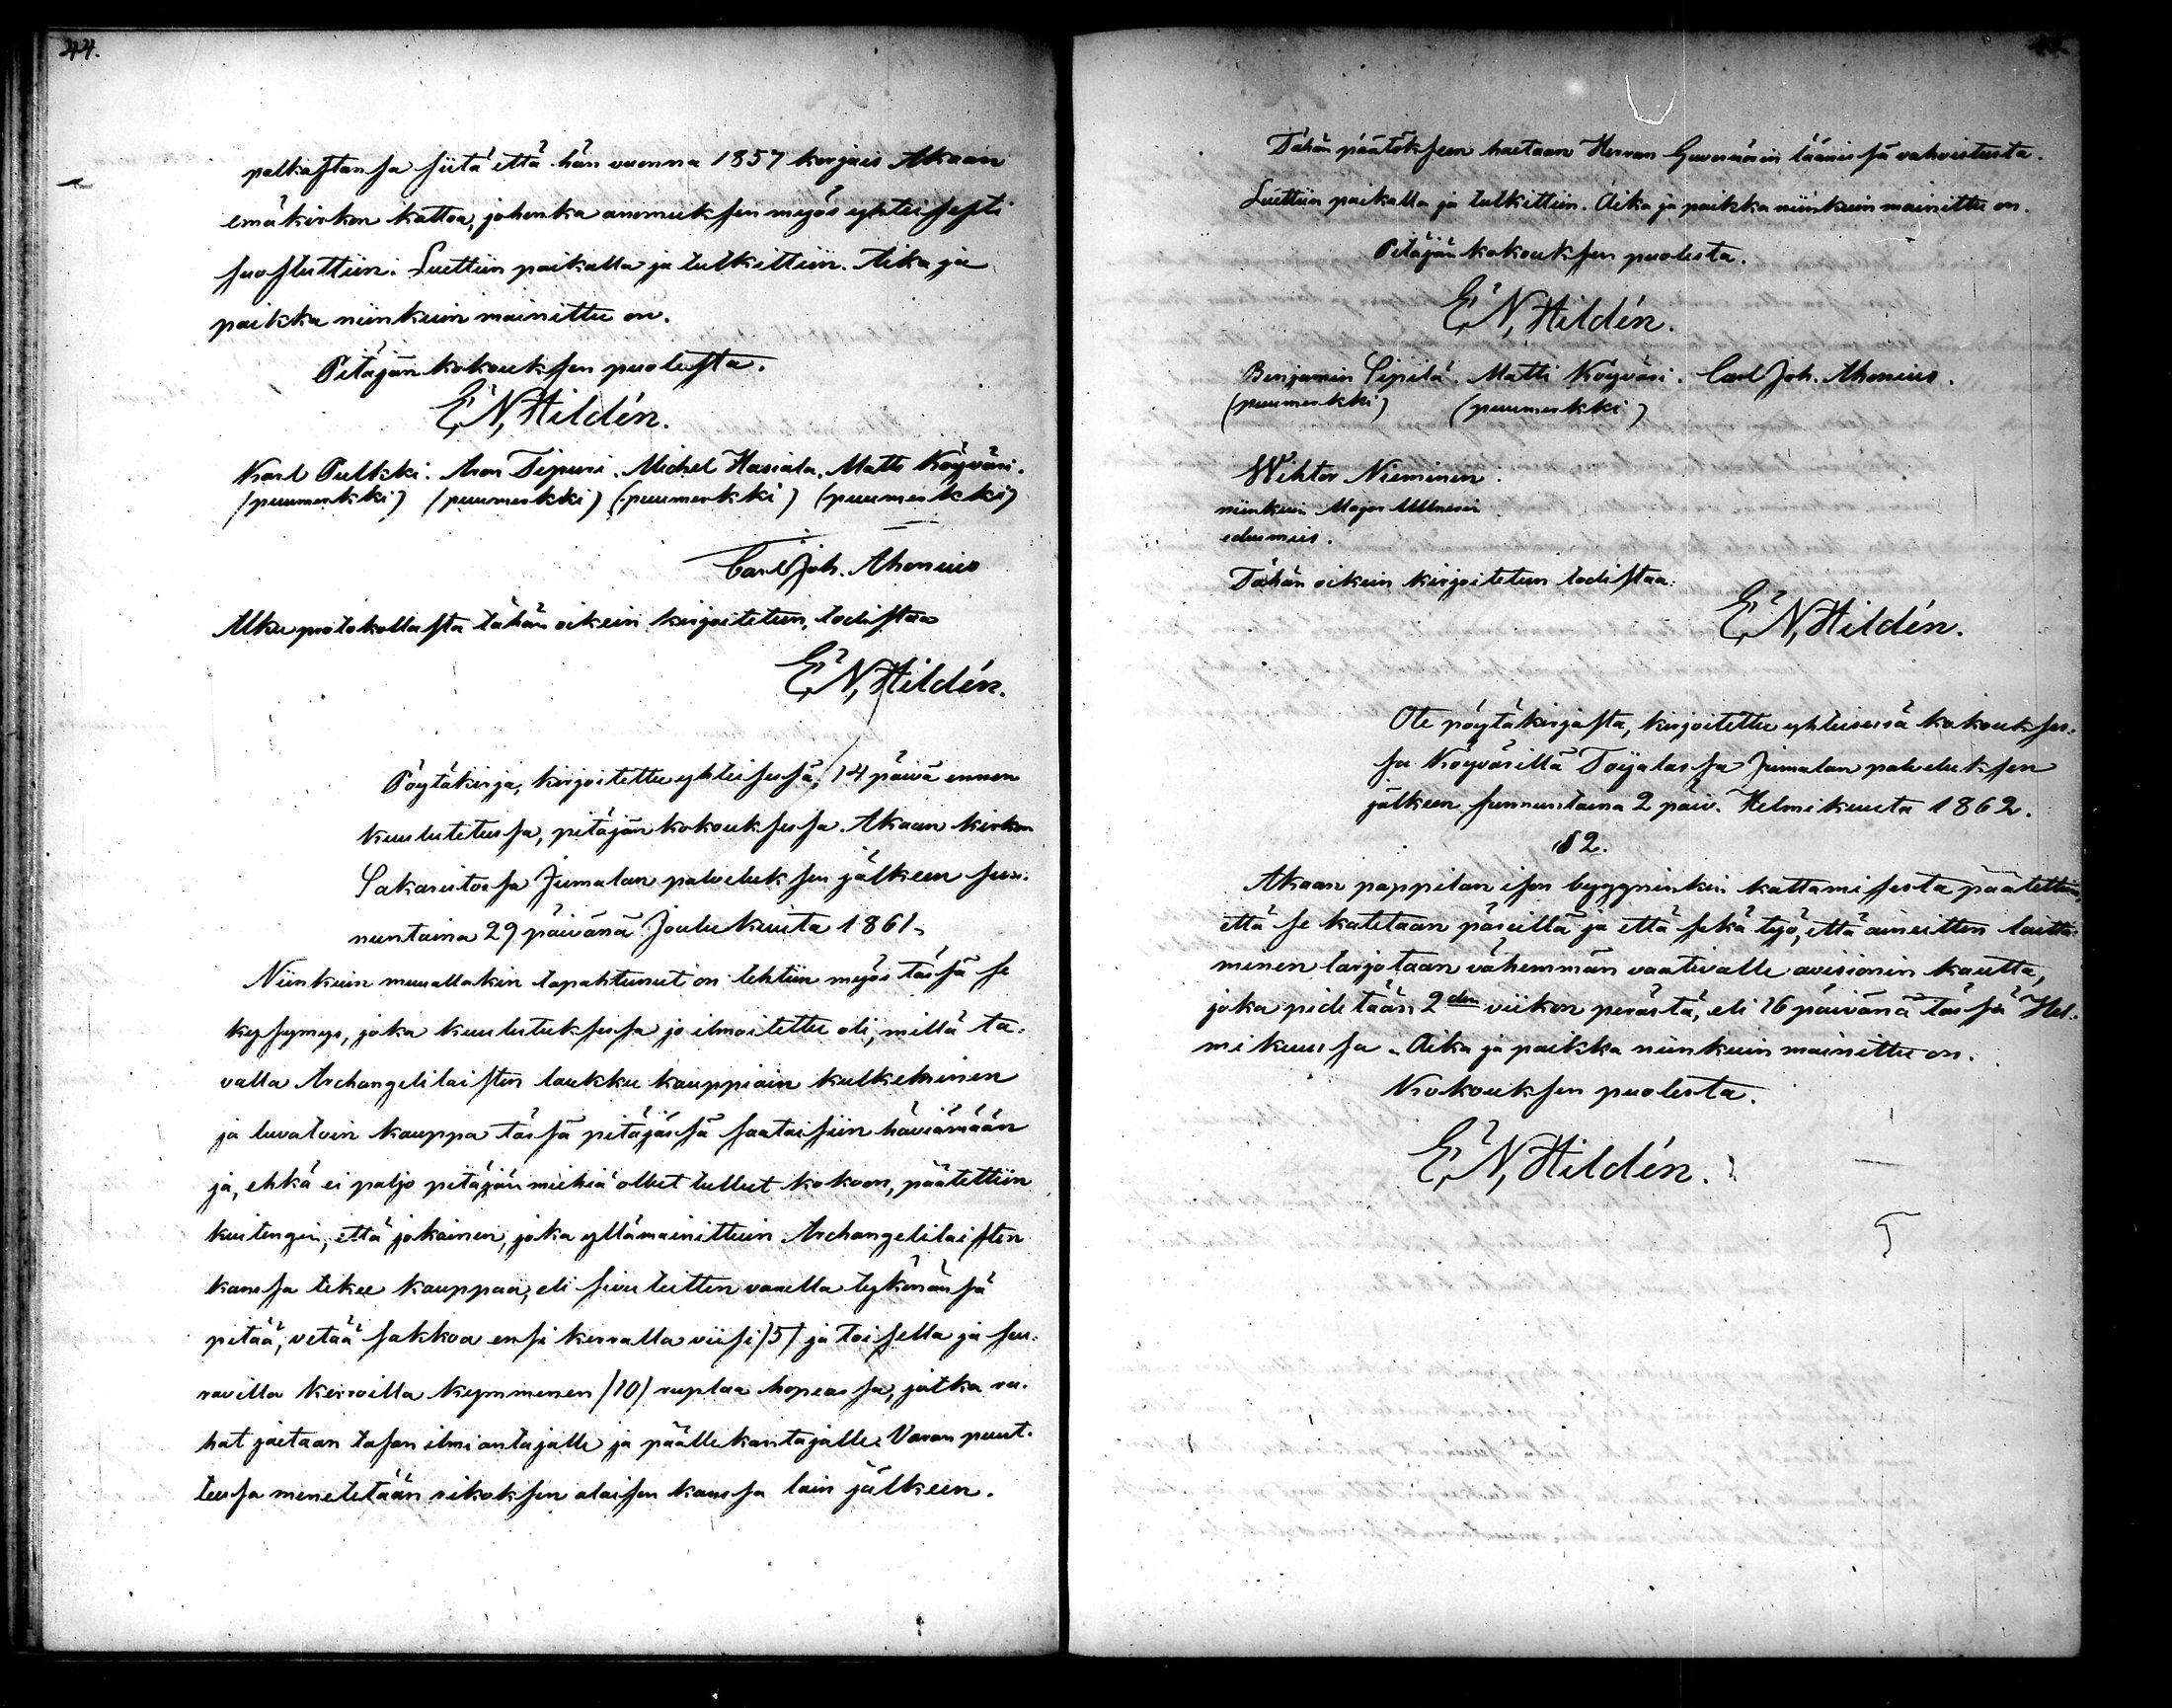 44.
palkastansa siitä että hän vuonna 1857 korjais Akaan
emäkirkon kattoa, johonka anomuksen myös yhteisesti
suostuttiin. Luettiin paikalla ja tutkittiin. Aika ja
paikka niinkuin mainittu on.
Pitäjän kokouksen puolesta.
E, N, Hildén.
Karl Pulkki. Aron Tipuri. Michel Hasiala. Matti Köyväri.
(puumerkki) (puumerkki) (puumerkki) (puumerkki)
Carl Joh. Ahonius
Alkuprotokollasta tähän oikein kirjoitetun, todistaa
E, N, Hildén.
Pöytäkirja, kirjoitettu yhteisessä, 14 päivä ennen
kuulutetussa, pitäjän kokouksessa Akaan kirkon
Sakaristossa Jumalan palveluksen jälkeen sun-
nuntaina 29 päivänä Joulukuuta 1861.
Niinkuin muuallakin tapahtunut on tehtiin myös tässä se
kysymys, joka kuulutuksessa jo ilmoitettu oli, millä ta-
valla Archangelilaisten laukku kauppiain kulkeminen
ja luvatoin kauppa tässä pitäjässä saataisiin häviämään
ja, ehkä ei paljo pitäjän miehiä ollut tullut kokoon, päätettiin
kuitengin, että jokainen, joka yllämainittuin Archangelilaisten
kanssa tekee kauppaa, eli sivuteitten varrella tykönänsä
pitää, vetää sakkoa ensi kerralla viisi /5/ ja toisella ja seu-
ravilla kerroilla kymmenen /10/ ruplaa hopeassa, jotka ra-
hat jaetaan tasan ilmiantajalle ja päällekantajalle. Varan puut-
teessa menetetään rikoksen alaisen kanssa lain jälkeen.
Tähän päätökseen haetaan Herran Guvernörin läänissä vahvistusta.
Luettiin paikalla ja tutkittiin. Aika ja paikka niinkuin mainittu on.
Pitäjän kokouksen puolesta.
E, N, Hildén.
Benjamin Sipilä. Matti Köyväri. Carl Joh. Ahonius.
(puumerkki) (puumerkki)
Wihtor Nieminen.
niinkuin Major
edusmies.
Tähän oikein kirjoitetun todistaa:
E, N, Hildén.
Ote pöytäkirjasta, kirjoitettu yhteisessä kokoukses-
sa Köyvärillä Toijalassa Jumalan palveluksen
jälkeen sunnuntaina 2 päiv. Helmikuuta 1862.
§ 2.
Akaan pappilan ison byggninkin kattamisesta päätettiin,
että se katetaan päreillä ja että sekä työ, että aineitten laitta-
minen tarjotaan vähemmän vaativalle avisionin kautta,
joka pidetään 2den viikon perästä, eli 16 päivänä tässä Hel-
mikuussa. Aika ja paikka niinkuin mainittu on.
Kokouksen puolesta.
E, N, Hildén.